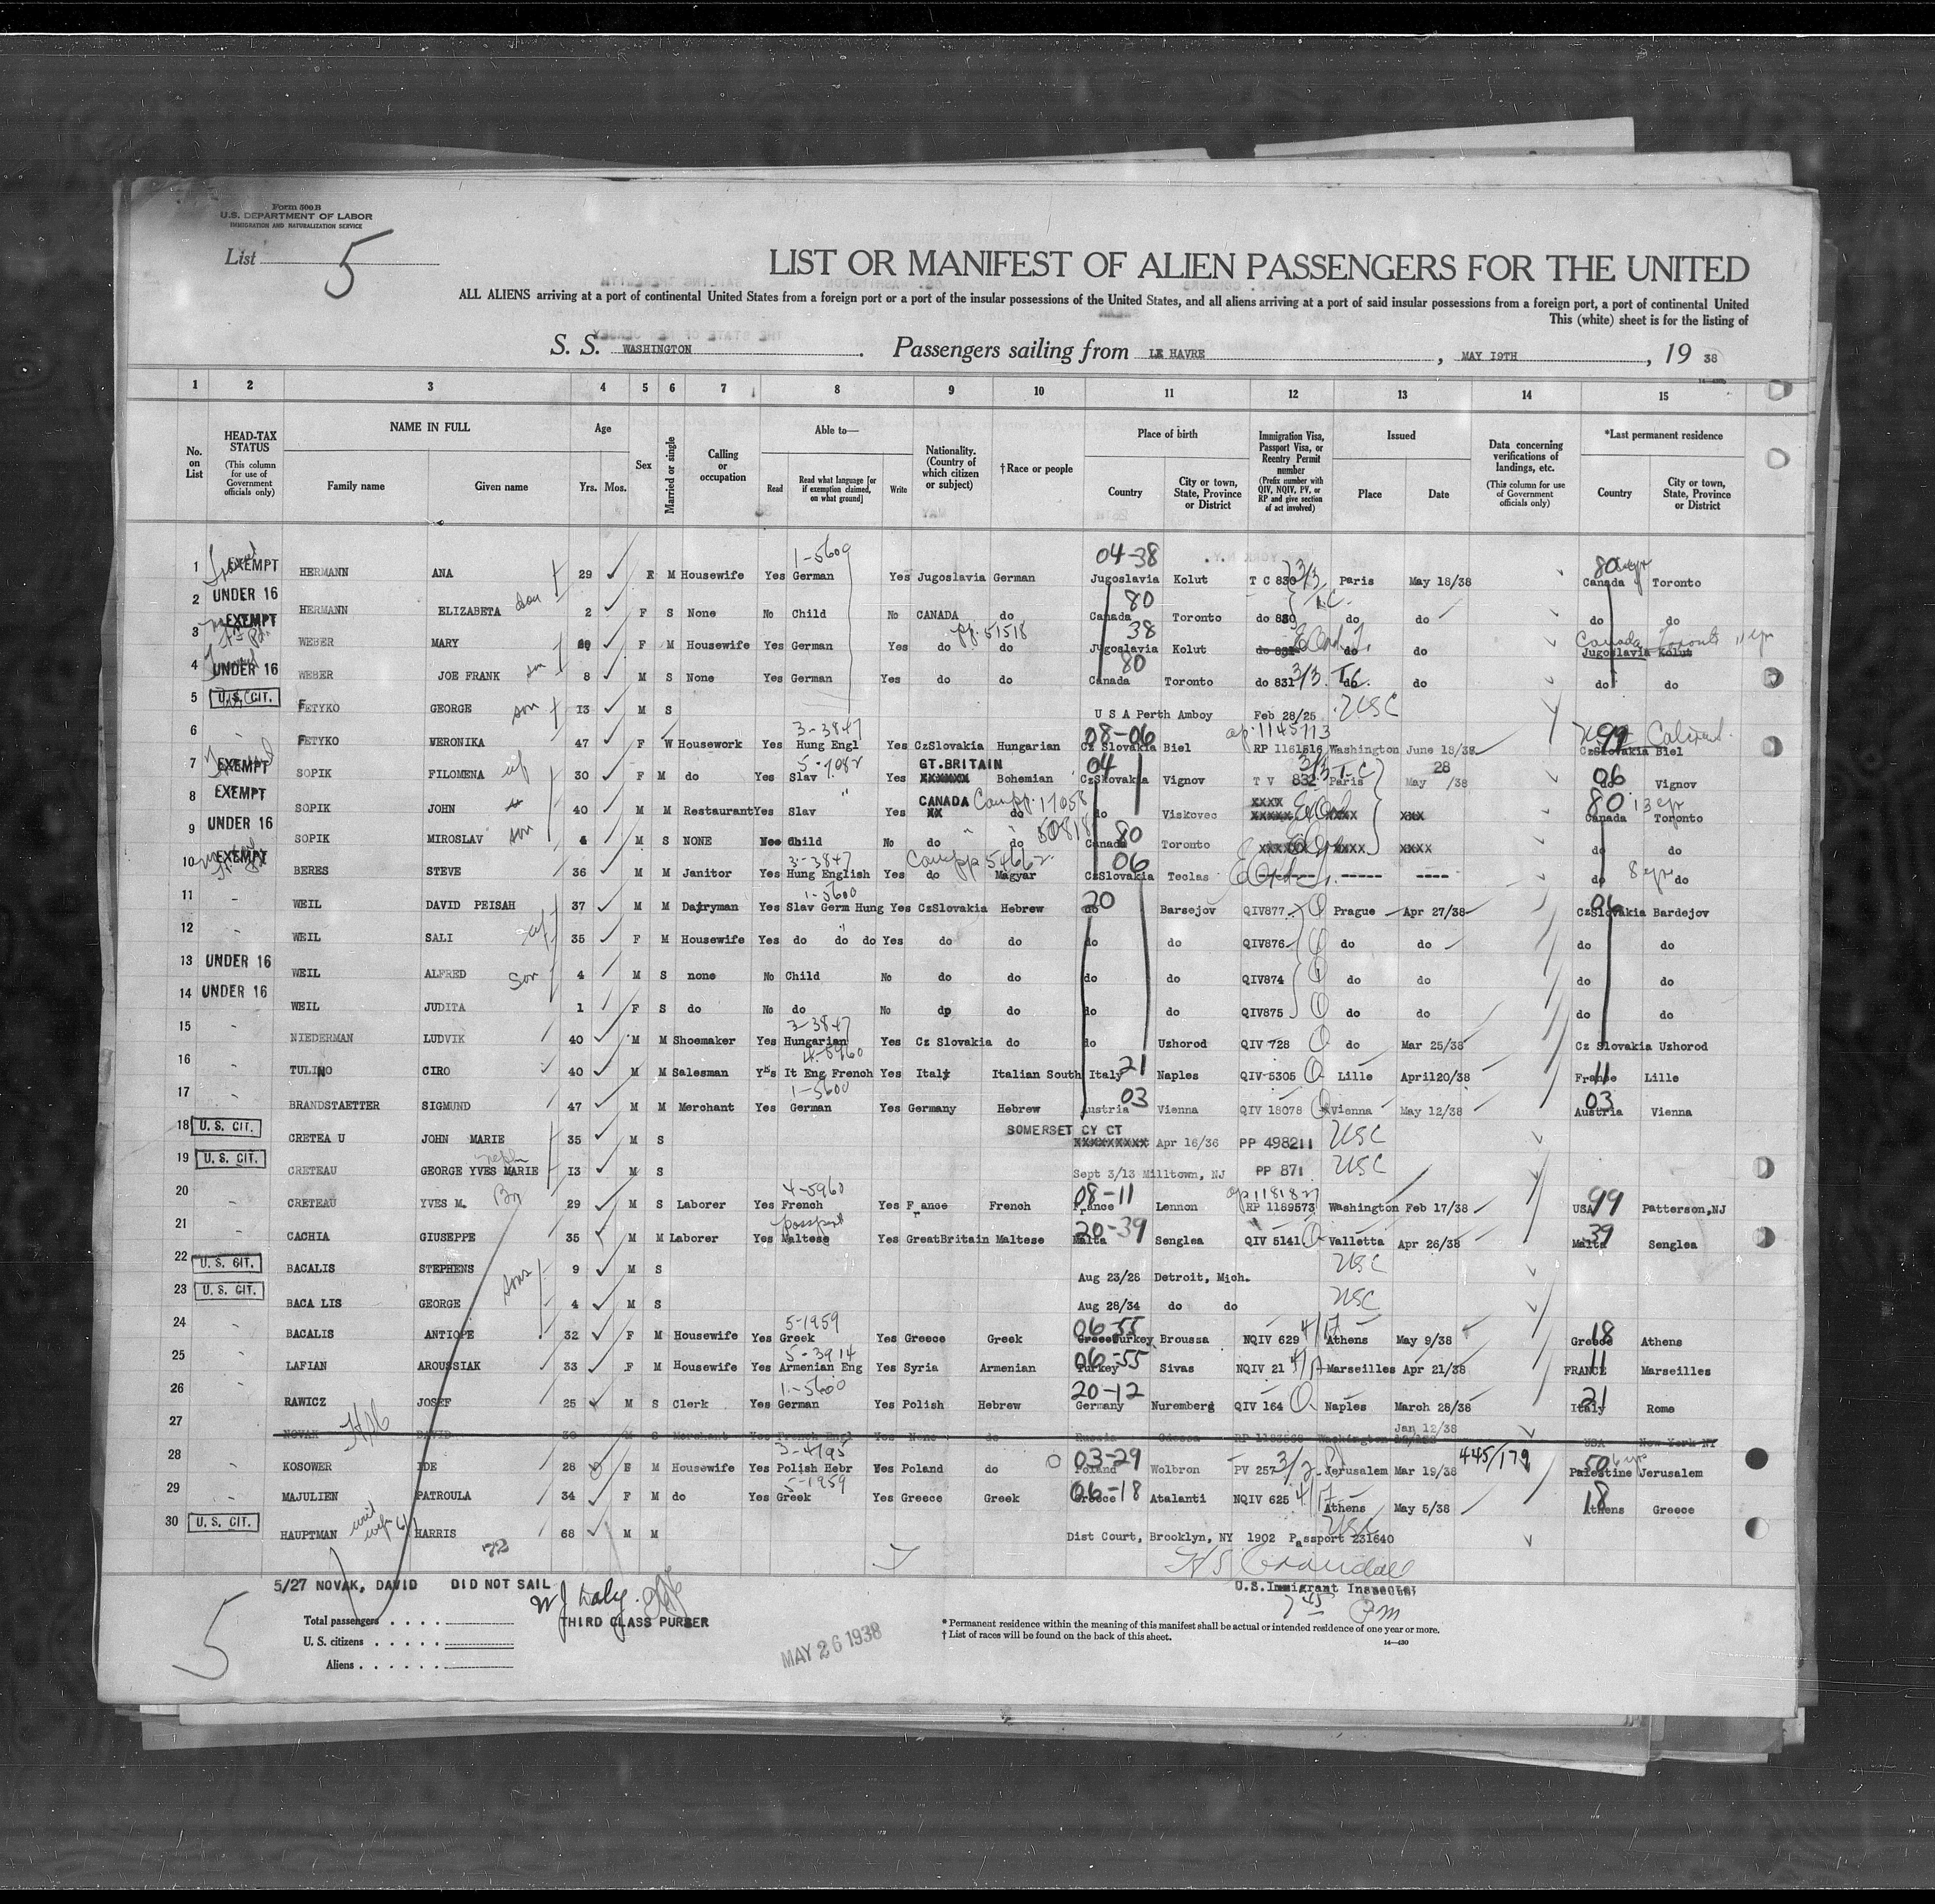 Form 500 B
U.S. DEPARTMENT OF LABOR
IMMIGRATION AND NATURALIZATION SERVICE
List 5
LIST OR MANIFEST OF ALIEN PASSENGERS FOR THE UNITED
ALL ALIENS arriving at a port of continental United States from a foreign port or a port of the insular possessions of the United States, and all aliens arriving at a port of said insular possessions from a foreign port, a port of continental United
This (white) sheet is for the listing of
S. S. WASHINGTON . Passengers sailing from LE HAVRE , MAY 19TH , 19 38
1 2 3 4 5 6 7 8 9 10 11 12 13 14 15
No. on List
HEAD-TAX STATUS (This column for use of Government officials only)
NAME IN FULL Family name Given name
Age Yrs. Mos.
Sex
Married or single
Calling or occupation
Able to— Read Read what language [or if exemption claimed, on what ground] Write
Nationality. (Country of which citizen or subject)
†Race or people
Place of birth Country City or town, State, Province or District
Immigration Visa, Passport Visa, or Reentry Permit number (Prefix number with QIV, NQIV, PV, or RP and give section of act involved)
Issued Place Date
Data concerning verifications of landings, etc. (This column for use of Government officials only)
*Last permanent residence Country City or town, State, Province or District
1-5609 04-38 80
1 EXEMPT HERMANN ANA 29 F M Housewife Yes German Yes Jugoslavia German Jugoslavia Kolut T C 830 3/3 Paris May 18/38 Canada Toronto
2 UNDER 16 HERMANN ELIZABETA 2 F S None No Child No CANADA do 80 Canada Toronto do 830 T.C. do do do do
3 EXEMPT WEBER MARY F M Housewife Yes German Yes do pp. 51518 do 38 Jugoslavia Kolut do 831 do do Canada Toronto 11 yr Jugoslavia Kolut
4 UNDER 16 WEBER JOE FRANK son 8 M S None Yes German Yes do do 80 Canada Toronto do 831 3/3 T.C. do do do do
5 U.S. CIT. FETYKO GEORGE son 13 M S U S A Perth Amboy Feb 28/25 USC
6 FETYKO VERONIKA 47 F W Housework Yes 3-3847 Hung Engl Yes CzSlovakia Hungarian 08-06 Cz Slovakia Biel RP 1161516 Washington June 18/37 99 CzSlovakia Biel
7 EXEMPT SOPIK FILOMENA wf 30 F M do Yes Slav Yes GT.BRITAIN XXXXXX Bohemian 04 CzSlovakia Vignov T V 832 3/3 T-C Paris May 28 /38 06 do Vignov
8 EXEMPT SOPIK JOHN 40 M M Restaurant Yes Slav " Yes CANADA XX Can pp. 17058 do do Viskovec XXXX XXXXX XXXX XXX 80 13 yr Canada Toronto
9 UNDER 16 SOPIK MIROSLAV son 4 M S NONE Child No do do 80 Canada Toronto XXXX XXXX do do
10 EXEMPT BERES STEVE 36 M M Janitor Yes 3-3847 Hung English Yes do Can pp 54662 Magyar 06 CzSlovakia Teclas ----- ---- do 8 yr do
11 WEIL DAVID PEISAH 37 M M Dairyman Yes 1-5600 Slav Germ Hung Yes CzSlovakia Hebrew 20 do Barsejov QIV877 Prague Apr 27/38 06 CzSlovakia Bardejov
12 WEIL SALI wf 35 F M Housewife Yes do do do Yes do do do do QIV876 do do do do
13 UNDER 16 WEIL ALFRED Son 4 M S none No Child No do do do do QIV874 do do do do
14 UNDER 16 WEIL JUDITA 1 F S do No do No do do do do QIV875 do do do do
15 NIEDERMAN LUDVIK 40 M M Shoemaker Yes 3-3847 Hungarian Yes Cz Slovakia do do Uzhorod QIV 728 do Mar 25/38 Cz Slovakia Uzhorod
16 TULINO CIRO 40 M M Salesman Yes 4-5960 It Eng French Yes Italy Italian South Italy 21 Naples QIV-5305 Lille April20/38 11 France Lille
17 BRANDSTAETTER SIGMUND 47 M M Merchant Yes 1-5600 German Yes Germany Hebrew 03 Austria Vienna QIV 18078 Vienna May 12/38 03 Austria Vienna
18 U. S. CIT. CRETEA U JOHN MARIE 35 M S SOMERSET CY CT XXXXXXXXX Apr 16/36 PP 498211 USC
19 U. S. CIT. CRETEAU GEORGE YVES MARIE neph 13 M S Sept 3/13 Milltown, NJ PP 871 USC
20 CRETEAU YVES M. Bro 29 M S Laborer Yes 4-5960 French Yes France French 08-11 France Lennon RP 1189573 Washington Feb 17/38 USA 99 Patterson,NJ
21 CACHIA GIUSEPPE 35 M M Laborer Yes passport Maltese Yes GreatBritain Maltese 20-39 Malta Senglea QIV 5141 Valletta Apr 26/38 39 Malta Senglea
22 U. S. CIT. BACALIS STEPHENS 9 M S Aug 23/28 Detroit, Mich. USC
23 U. S. CIT. BACA LIS GEORGE sons 4 M S Aug 28/34 do do USC
24 BACALIS ANTIOPE 32 F M Housewife Yes 5-1959 Greek Yes Greece Greek 06-55 Greece Turkey Broussa NQIV 629 4/17 Athens May 9/38 18 Greece Athens
25 LAFIAN AROUSSIAK 33 F M Housewife Yes 5-3914 Armenian Eng Yes Syria Armenian 06-55 Turkey Sivas NQIV 21 Marseilles Apr 21/38 11 FRANCE Marseilles
26 RAWICZ JOSEF 25 M S Clerk Yes 1-5600 German Yes Polish Hebrew 20-12 Germany Nuremberg QIV 164 Naples March 28/38 21 Italy Rome
27 NOVAK DAVID M S Merchant Yes French Engl Yes None do Russia Odessa Washington Jan 12/38 USA New York NY
28 KOSOWER IDE 28 F M Housewife Yes 3-4195 Polish Hebr Yes Poland do 03-29 Poland Wolbron PV 257 3/2 Jerusalem Mar 19/38 445/179 50 Palestine Jerusalem
29 MAJULIEN PATROULA 34 F M do Yes 5-1959 Greek Yes Greece Greek 06-18 Greece Atalanti NQIV 625 4/17 Athens May 5/38 18 Athens Greece
30 U. S. CIT. HAUPTMAN HARRIS 68 M M Dist Court, Brooklyn, NY 1902 Passport 231640 USC
72
5/27 NOVAK, DAVID DID NOT SAIL
W J Daly.
THIRD CLASS PURSER
U.S. Immigrant Inspector
7 45 PM
5
Total passengers . . . .
U. S. citizens . . . . .
Aliens . . . . . .
MAY 26 1938
* Permanent residence within the meaning of this manifest shall be actual or intended residence of one year or more.
† List of races will be found on the back of this sheet.
14—430